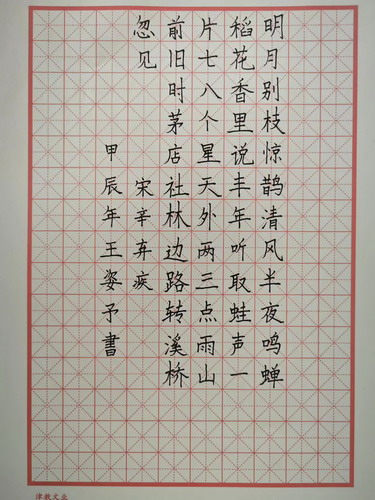 明月别枝惊鹊清风半夜鸣蝉
稻花香里说丰年听取蛙声一
片七八个星天外两三点雨山
前旧时茅店社林边路转溪桥
忽见
宋辛弃疾
甲辰年王姿予書
津教文业